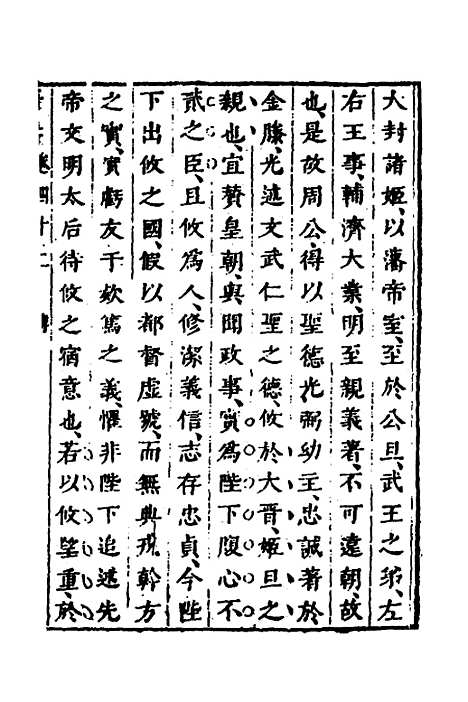 大封諸姬、以藩帝室、至於公旦、武王之弟、左
右王事、輔濟大業、明至親義著、不可遠朝、故
也、是故周公、得以聖德光弼幼主、忠誠著於
金縢、光述文武仁聖之德、攸於大晋、姬旦之
親也、宜贊皇朝、與聞政事、實爲陛下腹心不
貳之臣、且攸爲人、修潔義信、志存忠貞、今陛
下出攸之國、假以都督虛號、而無典戎幹方
之實、實虧友于欵篤之義、懼非陛下追述先
帝文明太后待攸之宿意也、若以攸望重、於
卷四十二